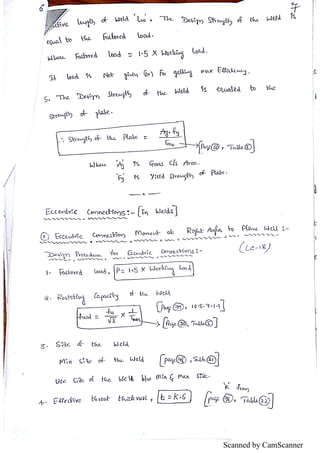 6
7
effective length of weld 'Lw'. The Design Strength of the weld is
equal to the Factored load.
Where Factored load = 1.5 x Working load.
If load is Not given (or) For getting max Efficiency.
5. The Design strength of the weld is equated to the
strength of plate.
∴ Strength of the Plate = Ag.Fy / γmo
[Page, Table 5]
Where 'Ag' is Gross c/s Area.
'Fy' is Yield strength of Plate.
Eccentric Connections:- [in Welds]
Eccentric Connection Moment at Right Angles to Plane Weld:-
Design Procedure for Eccentric Connections:-
1. Factored load, P = 1.5 x Working load
2. Resisting Capacity of the Weld
fwd = fu/√3 x 1/γmw
[Page, 10.5.7.1.1]
[Page, Table 5]
3. Size of the Weld
Min size of the Weld [page, Table 21]
Use size of the Weld b/w min & max size.
'K' from
4. Effective throat thickness, t = K.S [page, Table 22]
Scanned by CamScanner